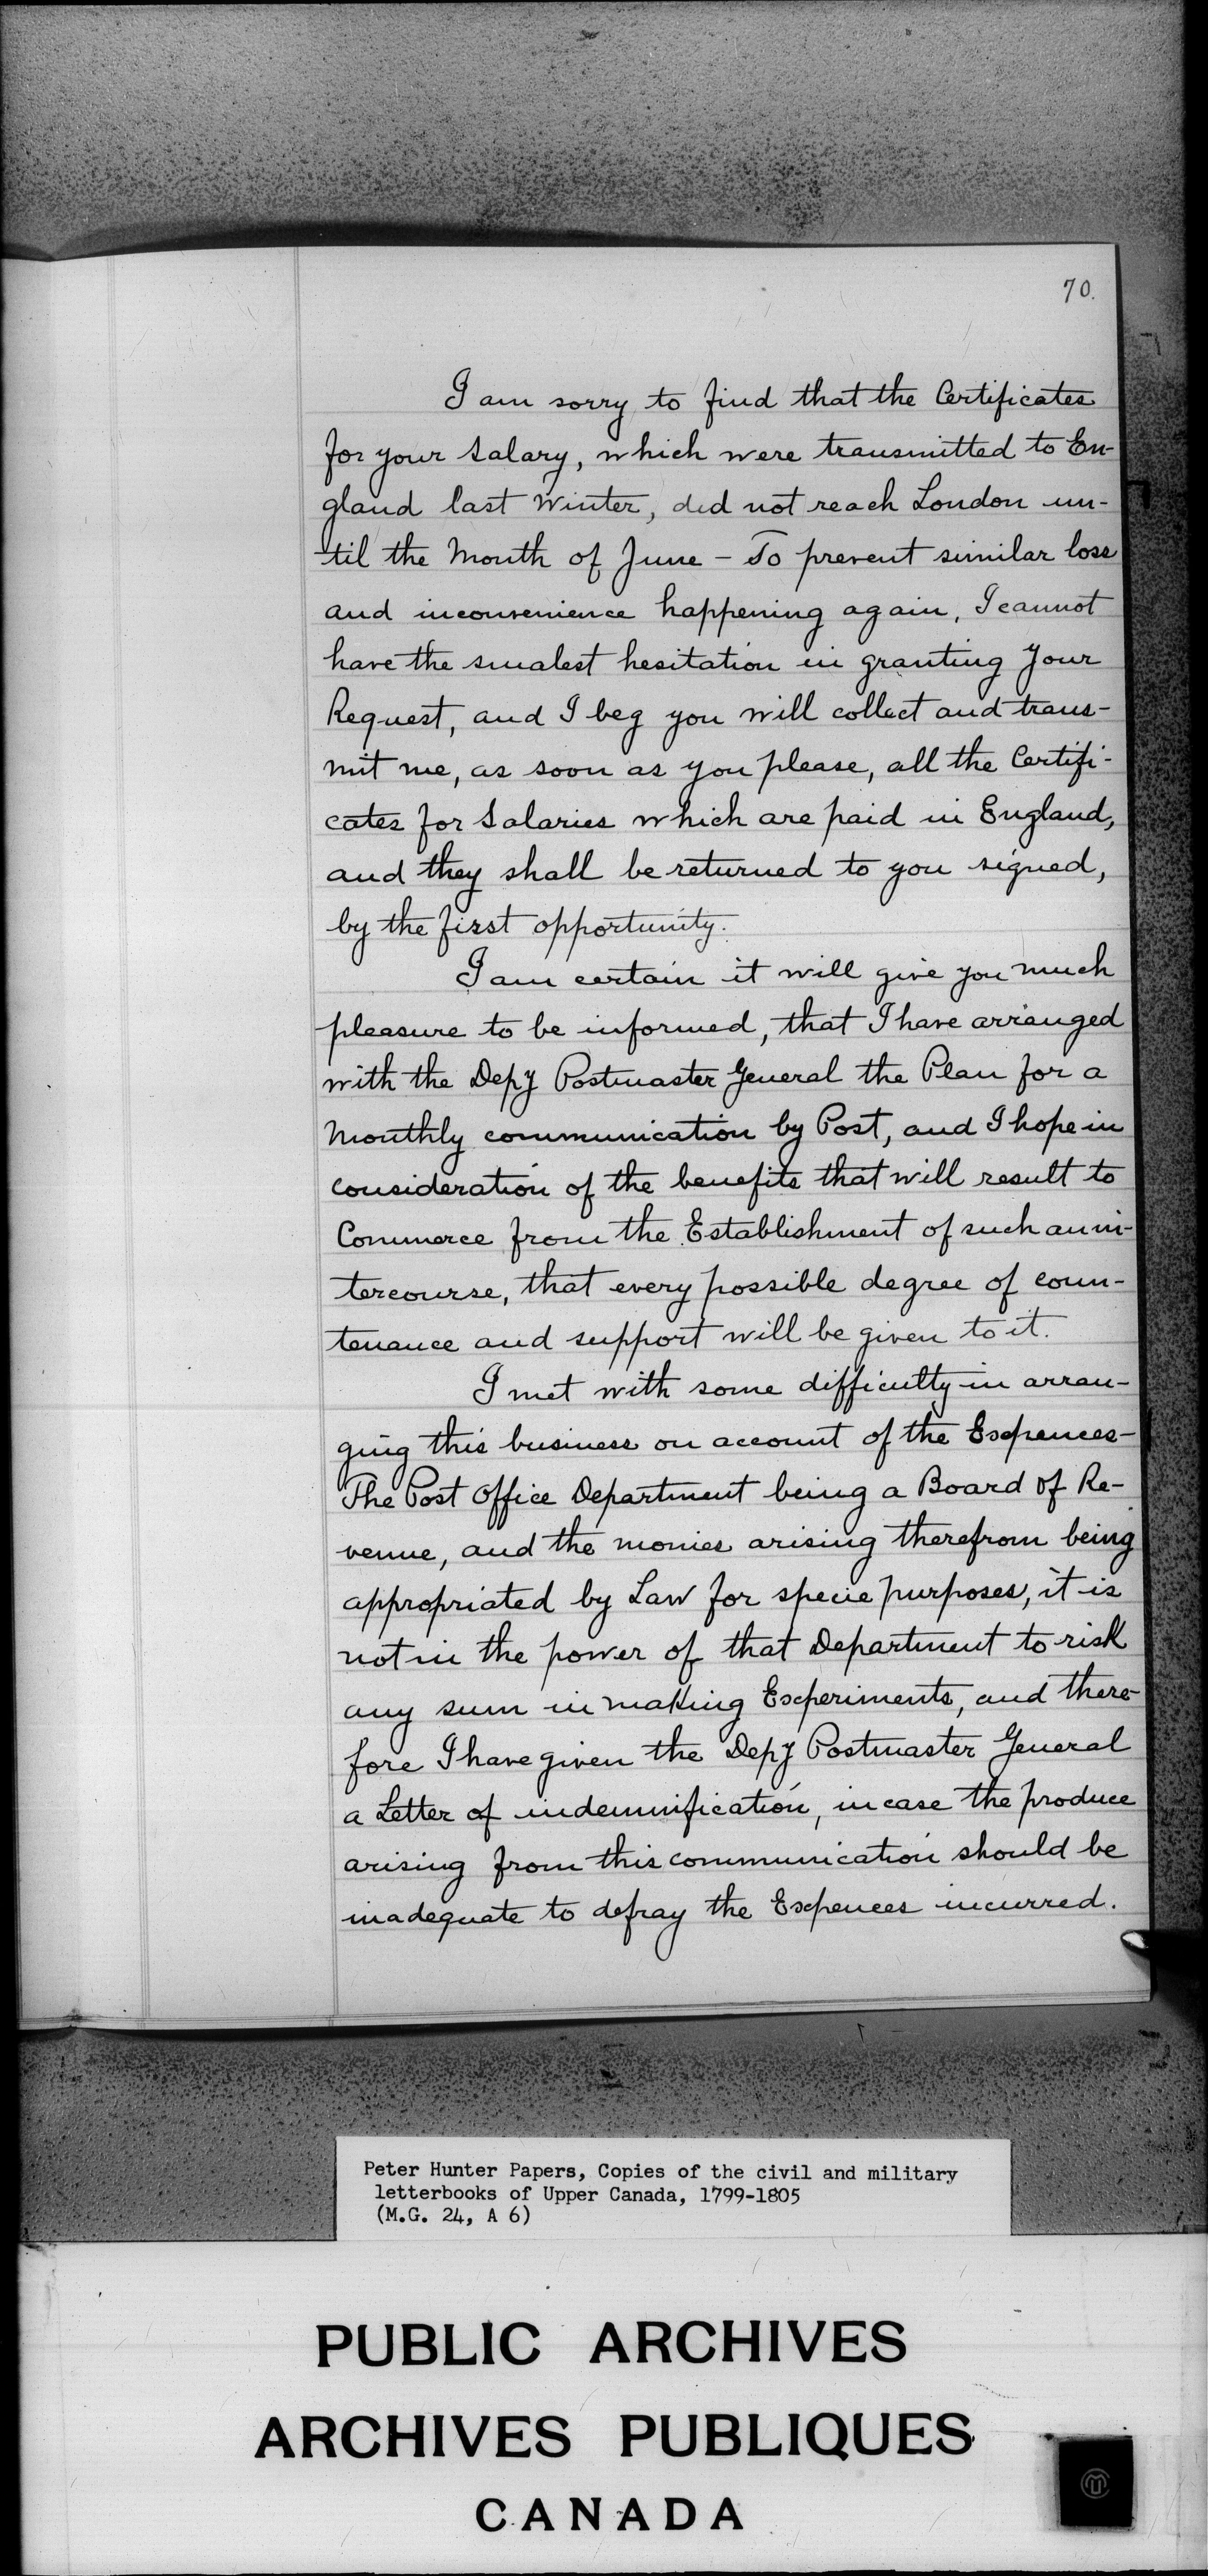 70.
I am sorry to find that the Certificates
for your Salary, which were transmitted to En-
gland last Winter, did not reach London un-
til the Month of June - To prevent similar loss
and inconvenience happening again, I cannot
have the smalest hesitation in granting your
Request, and I beg you will collect and trans-
mit me, as soon as you please, all the Certifi-
cates for Salaries which are paid in England,
and they shall be returned to you signed,
by the first opportunity.
I am certain it will give you much
pleasure to be informed, that I have arranged
with the Depy Postmaster General the Plan for a
Monthly communication by Post, and I hope in
consideration of the benefits that will result to
Commerce from the Establishment of such an in-
tercourse, that every possible degree of coun-
tenance and support will be given to it.
I met with some difficulty in arran-
ging this business on account of the Expences-
The Post Office Department being a Board of Re-
venue, and the monies arising therefrom being
appropriated by Law for specie purposes, it is
not in the power of that Department to risk
any sum in making Experiments, and there-
fore I have given the Depy Postmaster General
a Letter of indemnification, in case the produce
arising from this communication should be
inadequate to defray the Expences incurred.
Peter Hunter Papers, Copies of the civil and military
letterbooks of Upper Canada, 1799-1805
(M.G. 24, A 6)
PUBLIC ARCHIVES
ARCHIVES PUBLIQUES
CANADA